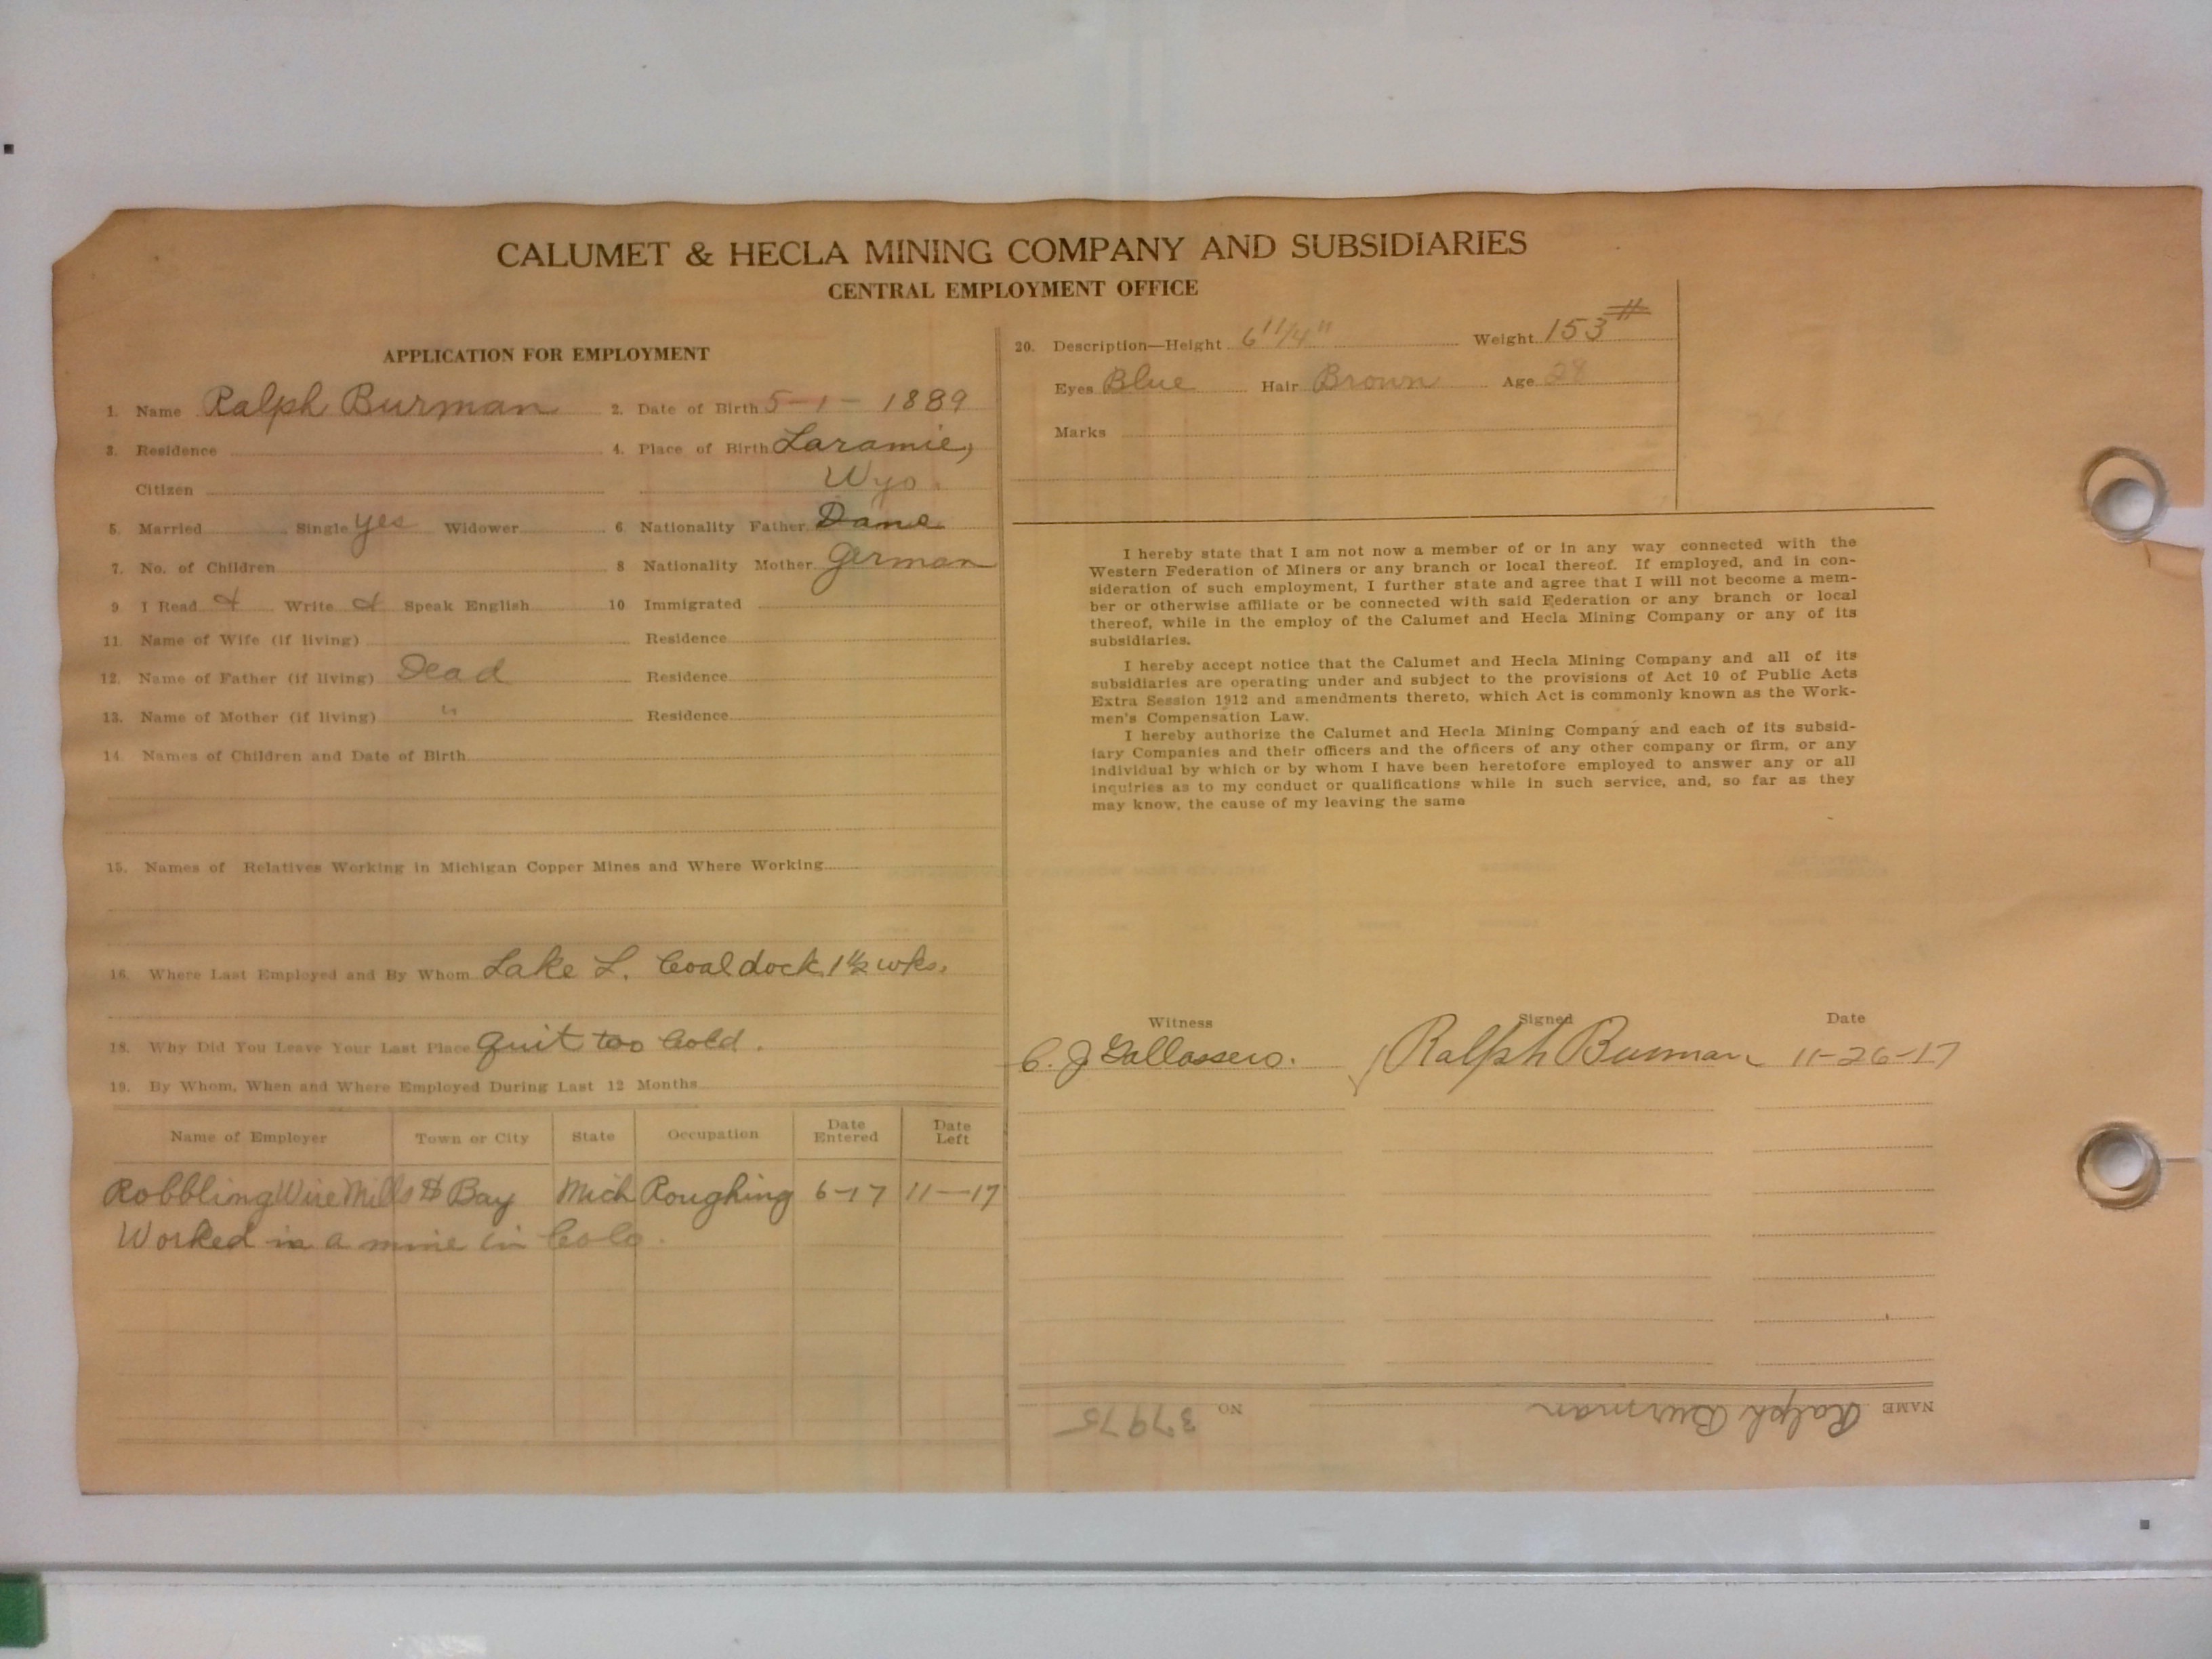 CALUMET & HECLA MINING COMPANY AND SUBSIDIARIES
CENTRAL EMPLOYMENT OFFICE
APPLICATION FOR EMPLOYMENT
1. Name Ralph Burman 2. Date of Birth 5-1-1889
3. Residence 4. Place of Birth Laramie,
Citizen Wyo.
5. Married Single yes Widower 6 Nationality Father Dane
7. No. of Children 8 Nationality Mother German
9. I Read & Write & Speak English 10 Immigrated
11. Name of Wife (if living) Residence
12. Name of Father (if living) Dead Residence
13. Name of Mother (if living) " Residence
14. Names of Children and Date of Birth
15. Names of Relatives Working in Michigan Copper Mines and Where Working
16. Where Last Employed and By Whom Lake L. Coaldock 1½ wks.
18. Why Did You Leave Your Last Place Quit too Cold.
19. By Whom, When and Where Employed During Last 12 Months
Name of Employer Town or City State Occupation Date Entered Date Left
Robbling Wire Mills Bay Mich Roughing 6-17 11-17
Worked in a mine in Colo.
20. Description—Height 6' 1/4" Weight 153#
Eyes Blue Hair Brown Age 28
Marks
I hereby state that I am not now a member of or in any way connected with the
Western Federation of Miners or any branch or local thereof. If employed, and in con-
sideration of such employment, I further state and agree that I will not become a mem-
ber or otherwise affiliate or be connected with said Federation or any branch or local
thereof, while in the employ of the Calumet and Hecla Mining Company or any of its
subsidiaries.
I hereby accept notice that the Calumet and Hecla Mining Company and all of its
subsidiaries are operating under and subject to the provisions of Act 10 of Public Acts
Extra Session 1912 and amendments thereto, which Act is commonly known as the Work-
men's Compensation Law.
I hereby authorize the Calumet and Hecla Mining Company and each of its subsid-
iary Companies and their officers and the officers of any other company or firm, or any
individual by which or by whom I have been heretofore employed to answer any or all
inquiries as to my conduct or qualifications while in such service, and, so far as they
may know, the cause of my leaving the same
Witness Signed Date
C. J. Ralph Burman 11-26-17
NAME Ralph Burman NO 37975